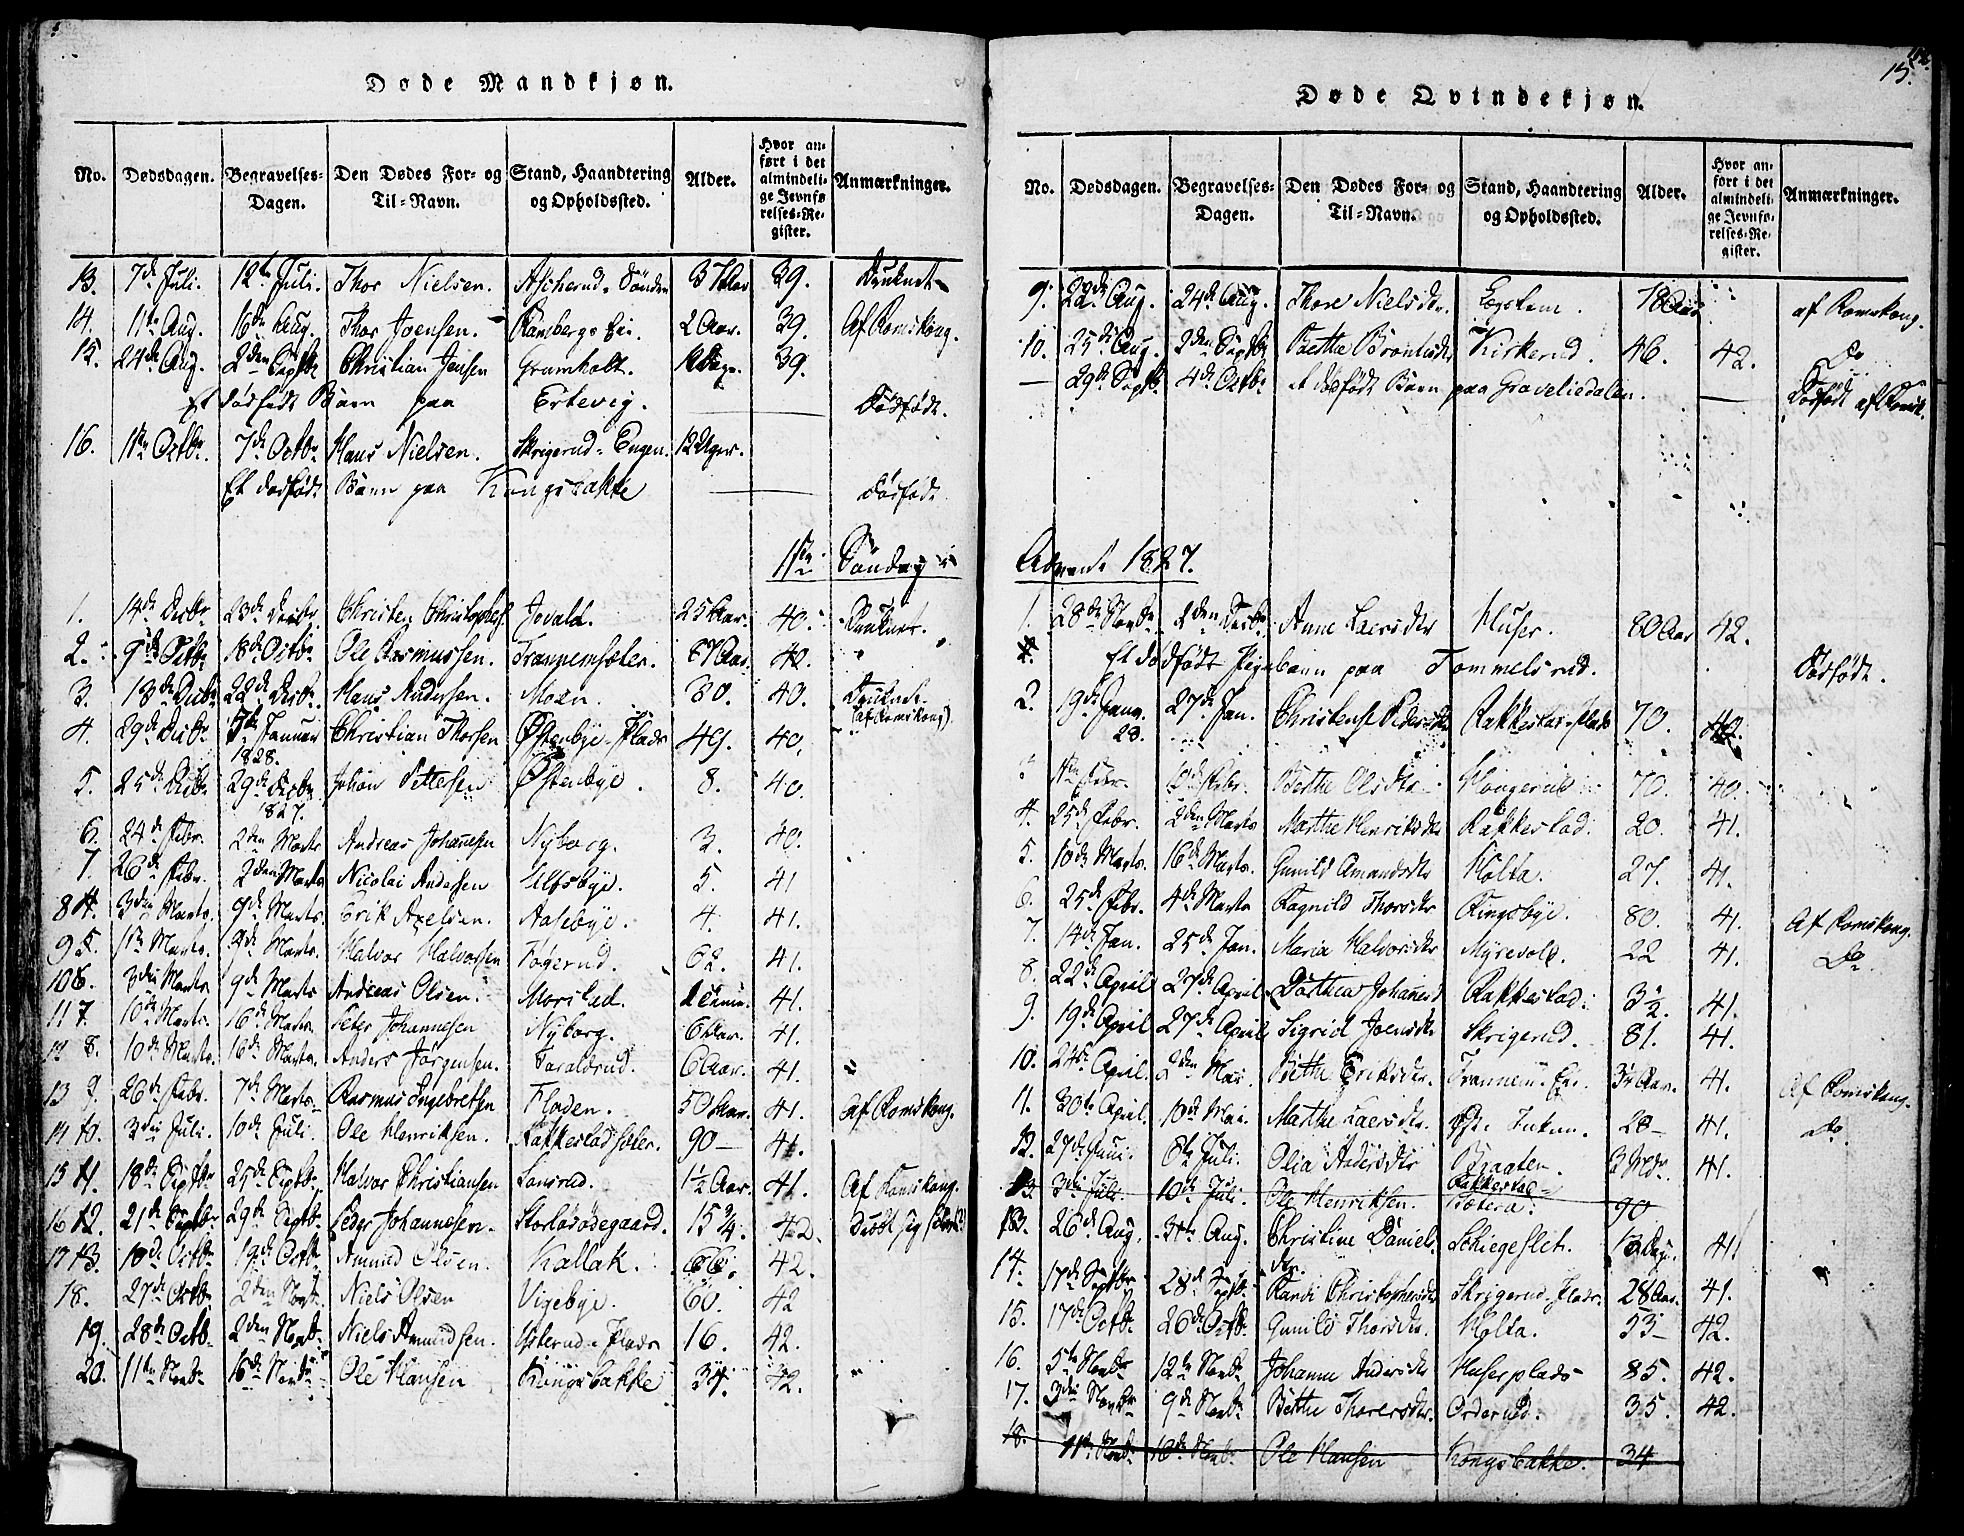 Døde Mandkjøn.
No. Dødsdagen. Begravelses-Dagen. Den Dødes For- og Til-Navn. Stand, Haandtering og Opholdssted. Alder. Hvor anført i det almindelige Jevnførelses-Register. Anmærkninger.
13. 7de Juli. 12te Juli. Thor Nielsen. Ascherud-Sönder 37 Aar 39. Druknet
14. 11te Aug. 16de Aug. Thor Joensen. Ramberg 2 Aar. 39. Af Romskoug.
15. 24de Aug. 2den Septbr Christian Jensen Grumholt. 39.
Et dødfødt Barn paa Ertevig. Dødfødt.
16. 1ste Octbr. 7de Octbr Hans Nielsen. Skrigerud-Engen. 12 Uger.
Et dødfødt Barn paa Kongsbakke Dødfødt
1ste Søndag i
1. 14de Decbr 23de Decbr Christen Christophers. Jovald. 25 Aar. 40. Druknet.
2. 9de Octbr 18de Octbr Ole Rasmussen. Trannemsæter. 67 Aar 40.
3. 13de Decbr 22de Decbr. Hans Andersen. Moen. 30. 40. Druknet. (af Romskoug)
4. 29de Decbr Januar 1828. Christian Thorsen Østenbye-Plads 49. 40.
5. 25de Decbr 29de Decbr 1827. Johan Pettersen Østenbye. 8. 40.
6. 24de Febr. 2den Marts Andreas Johannesen Nyborg. 3. 40.
7. 26de Febr. 2den Marts Nicolai Andersen Ulfsbye. 5. 41
8 4. 3die Marts. 9de Marts. Erik Axelsen. Aasebye. 4. 41.
9 5. 11te Marts. Marts. Halvor Halvorsen Tøgerud. 62. 41.
10 6. 3die Marts 9de Marts Andreas Olsen. Morstad. 41.
11 7. 10de Marts. 16de Marts. Peter Johannesen Nyborg. 6 Aar. 41.
12 8. 10de Marts. 16de Marts. Anders Jørgensen. Taraldrud. 6 Aar. 41.
13 9. 26de Febr. 7de Marts. Rasmus Ingebretsen Floden. 50 Aar. 41. Af Romskoug.
14 10. 3die Juli. 10de Juli. Ole Henriksen. Rakkestadsæter. 90 — 41.
15 11. 18de Septbr 25de Septbr. Halvor Christiansen Lonsrud. 1½ Aar. 41. Af Romskoug.
16 12. 21de Septbr 29de Septbr. Peder Johannesen. Storløsødegaard. 15¾. 42.
17 13. 10de Octbr 19de Octbr Amund Olsen. Kallak. 66. 42.
18. 27de Octbr 2den Novbr. Niels Olsen Vigebye. 60. 42
19. 28de Octbr. 2den Novbr. Niels Amundsen. Plads 16. 42.
20. 11te Novbr 16de Novbr Ole Hansen Kongsbakke 34. 42.
15.
Døde Qvindekjøn.
No. Dødsdagen. Begravelses-Dagen. Den Dødes For- og Til-Navn. Stand, Haandtering og Opholdssted. Alder. Hvor anført i det almindelige Jevnførelses-Register. Anmærkninger.
9. 22de Aug. 24de Aug. Thore Nielsdtr. 78 Aar af Romskoug.
10. 25de Aug. 2den Septbr Berthe Kirkerud. 46. 42. Do
— 29de Septbr. 4de Octbr et dødfødt Barn paa Graveliedalen. — Dødfødt af Romsk.
Advent 1827.
1. 28de Novbr. 2den Decbr. Anne Larsdtr Huser. 80 Aar 42.
Et dødfødt Pigebarn paa Tommelsrud. Dødfødt.
2. 19de Janr. 28. 27de Jan. Christense Pedersdtr Rakkestad-Plads 70. 40.
Febr. Febr. Berthe Olsdtr Hougerud 70. 40.
4. 25de Febr. 2den Marts Marthe Henriksdtr Rakkestad. 20. 41.
5. 10de Marts. 16de Marts. Gunild Amundsdtr Holta. 27. 41.
6. 25de Febr. 4de Marts Ragnild Thorsdtr Ringsbye. 80. 41. Af Romskoug.
7. 14de Jan. 25de Jan. Maria Halvorsdtr Myrevold. 22 41. Do.
8. 22de April 27de April Dorthea Johannesd Rakkestad. 3½. 41.
9. 19de April 27de April Sigrid Joensdtr Skrigerud. 81. 41.
10. 24de April. 2den Mai. Berthe Eriksdtr. Trannem-Eie. 34 Aar. 41. Af Romskoug.
11. 30te April. 10de Mai. Marthe Larsdtr. 28 — 41. Do.
12. 27de Juni. 6te Juli. Olia Andersdtr Braaten. 3 41.
13. 3die Juli. 10de Juli. Ole Henriksen. Rakkestad-Sætera. 90
13. 26de Aug. 31te Aug. Christine Daniels-dtr. Schiegeslet. 41.
14. 17de Septbr 28de Septbr. Randi Christophersdtr Skrigerud-Plads. 28 Aar. 41.
15. 17de Octbr. 26de Octbr. Gunild Thorsdtr. Holta. 53 — 42.
16. 5te Novbr 12te Novbr Johanne Andersdtr Huserplads 85. 42.
17. 3die Novbr 9de Novbr Berthe Thoresdtr. Ordrud. 35. 42.
18. 11te Novbr 16de Novbr. Ole Hansen Kongsbakke. 34